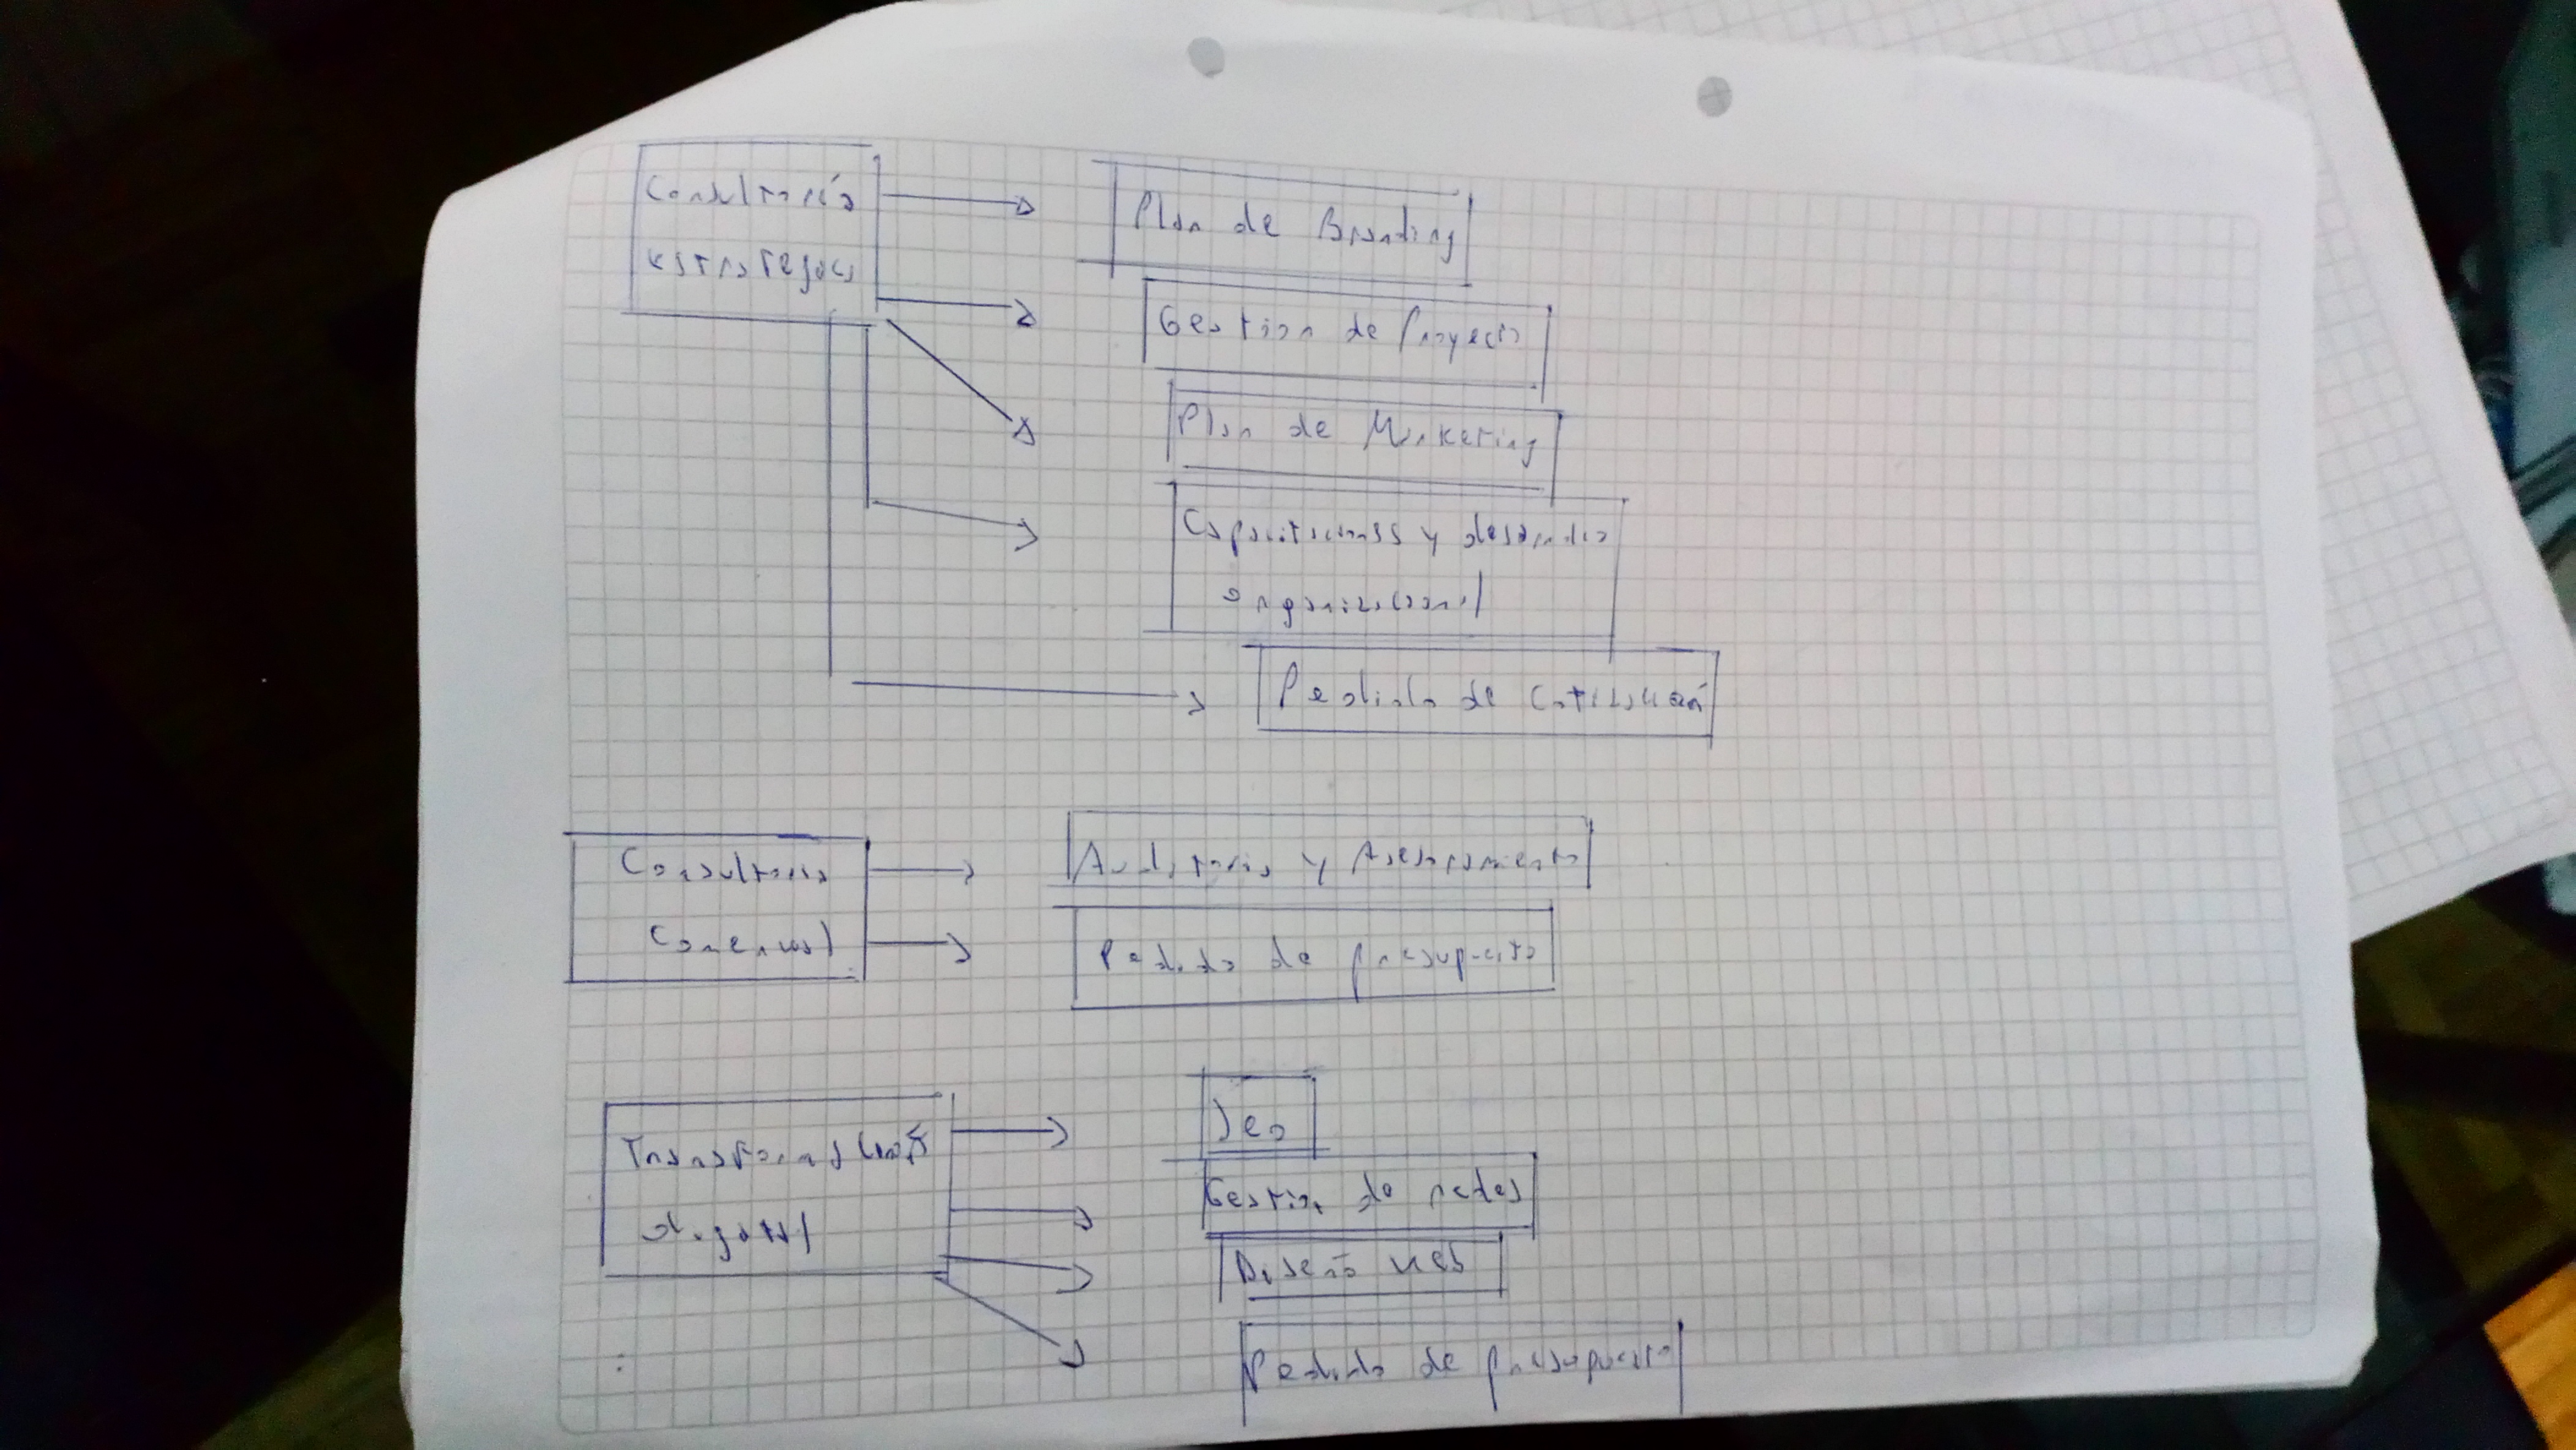 Consultoría
estrategica
Plan de Branding
Gestion de Proyecto
Plan de Marketing
Capacitaciones y desarrollo
organizacional
Pedido de Cotización
Consultoria
Comercial
Auditoria y Asesoramiento
Pedido de presupuesto
Transformación
digital
Seo
Gestion de redes
Diseño web
Pedido de presupuesto